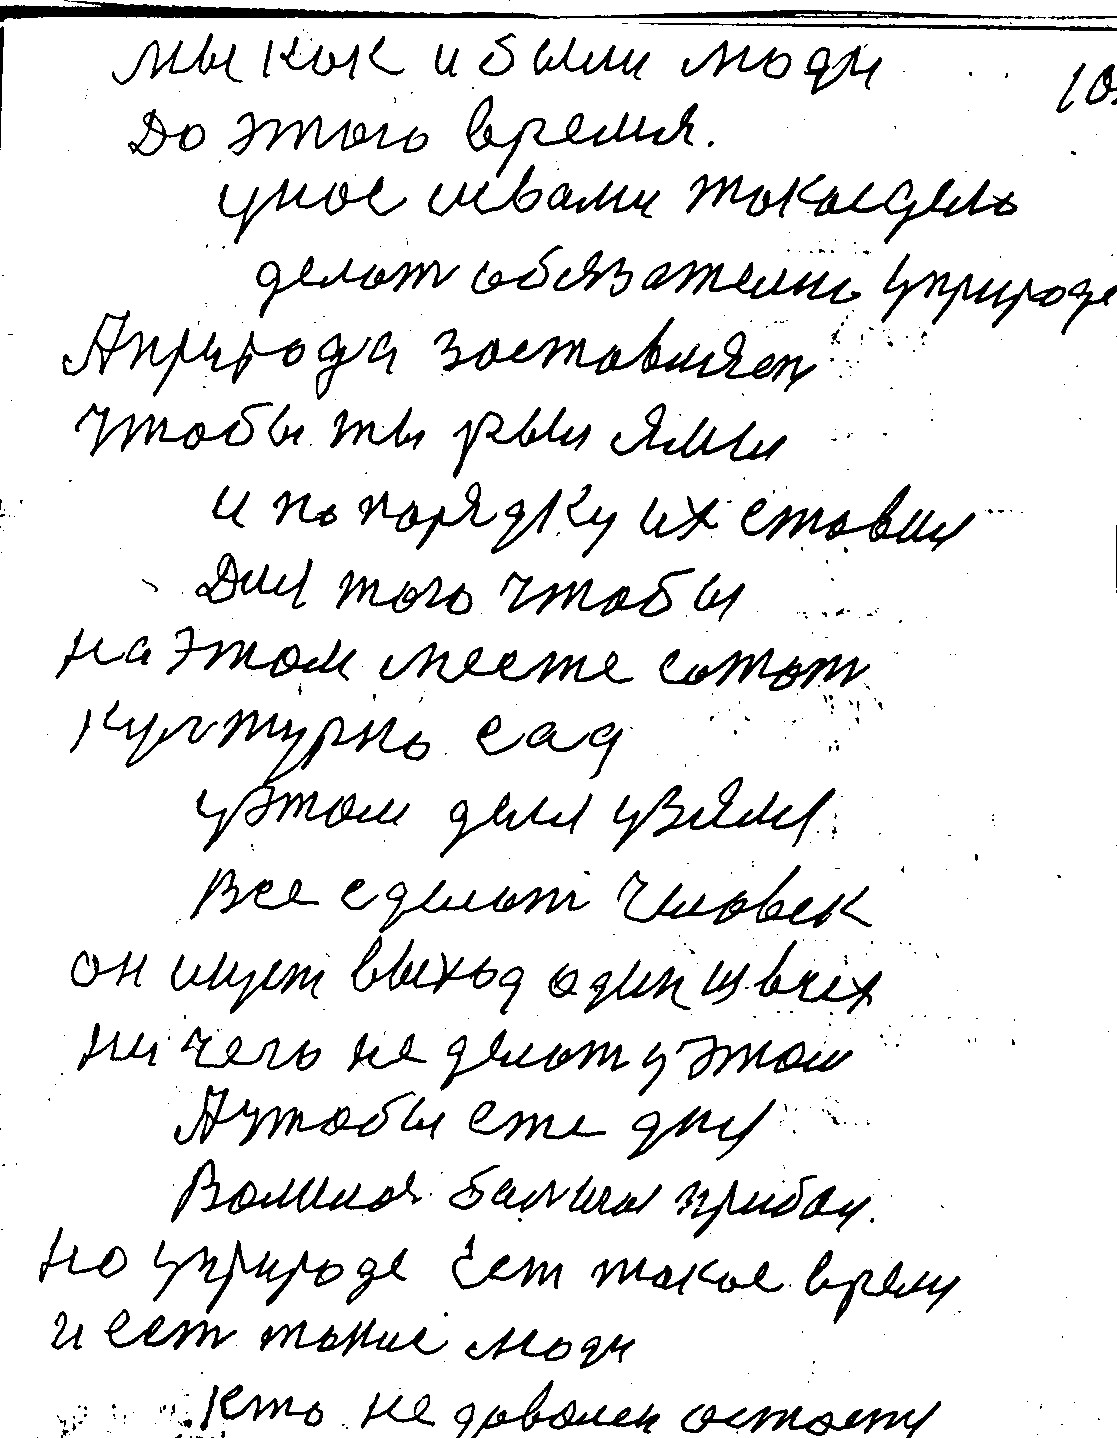 мы как и были люди
10
До этого время.
унас свами такоедело
делат обязателно уприроде
Априрода заставляет
чтобы ты рыл ямы
и по порядку их ставил
Для того чтобы
на этом месте
културно сад
уэтом деле узяля
Все сделат человек
он ищет выход один
ни чего не делат у этом
Ачтобы для
прибил.
но уприроде ест такое время
и ест такие люди
кто не доволен